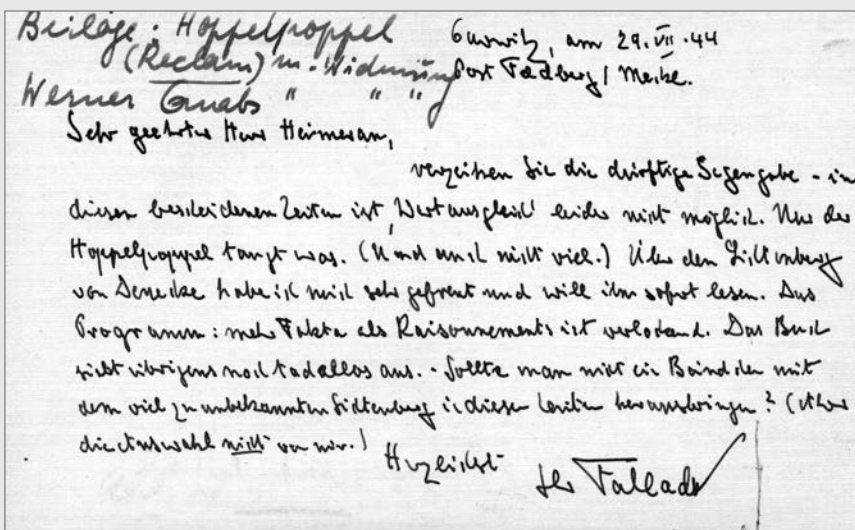 Beilage: Hoppelpoppel
(Reclam) m. Widmung
Werner Quabs " " "
Carwitz, am 29.VII.44
Post Feldberg / Meckl.
Sehr geehrter Herr Heimeran,
verzeihen Sie die dürftige Gegengabe - in
diesen bescheidenen Zeiten ist ‚Wertausgleich' leider nicht möglich. Nur der
Hoppelpoppel taugt was. (Und auch nicht viel.) Über den Lichtenberg
von Denecke habe ich mich sehr gefreut und will ihn sofort lesen. Das
Programm: mehr Fakta als Raisonnements ist verlockend. Das Buch
sieht übrigens noch tadellos aus. - Sollte man nicht ein Bändchen mit
dem viel zu unbekannten Lichtenberg in diesen Zeiten herausbringen? (Aber
die Auswahl nicht von mir.)
Herzlichst
Ihr Fallada